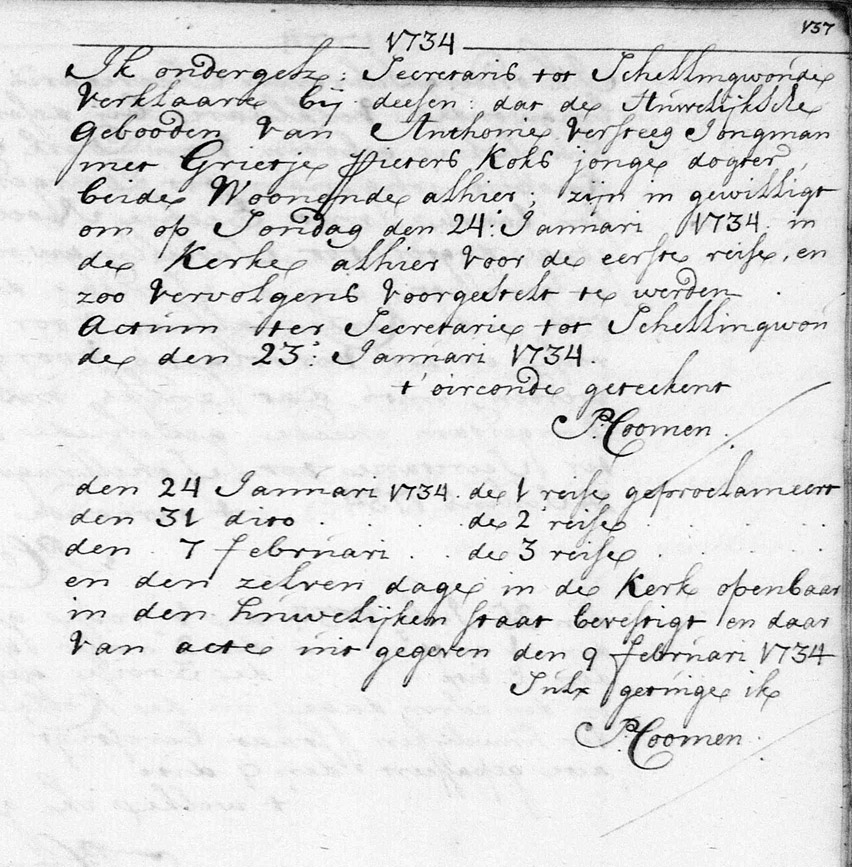 137
1734
Ik ondergetz: Secretaris tot Schellingwoude
Verklaare bij deesen: dat de Huwelijksche
Gebooden Van Anthonie Versteeg Jongman
met Grietje Pieters Koks jonge dogter
beide Woonende alhier; zijn in gewilligt
om op Sondag den 24: Januari 1734. in
de Kerke alhier voor de eerste reise, en
zoo vervolgens voorgestelt te werden
Actum ter Secretarie tot Schellingwou
de den 23: Januari 1734.
t'oirconde geteekent
P. Coomen.
den 24 Januari 1734. de 1 reise geproclameert
den 31 dito . de 2 reise
den 7 februari . de 3 reise
en den zelven dage in de Kerk openbaar
in den huwelijken staat bevestigt en daar
van acte uit gegeven den 9 februari 1734
Sulx getuige ik
P. Coomen.